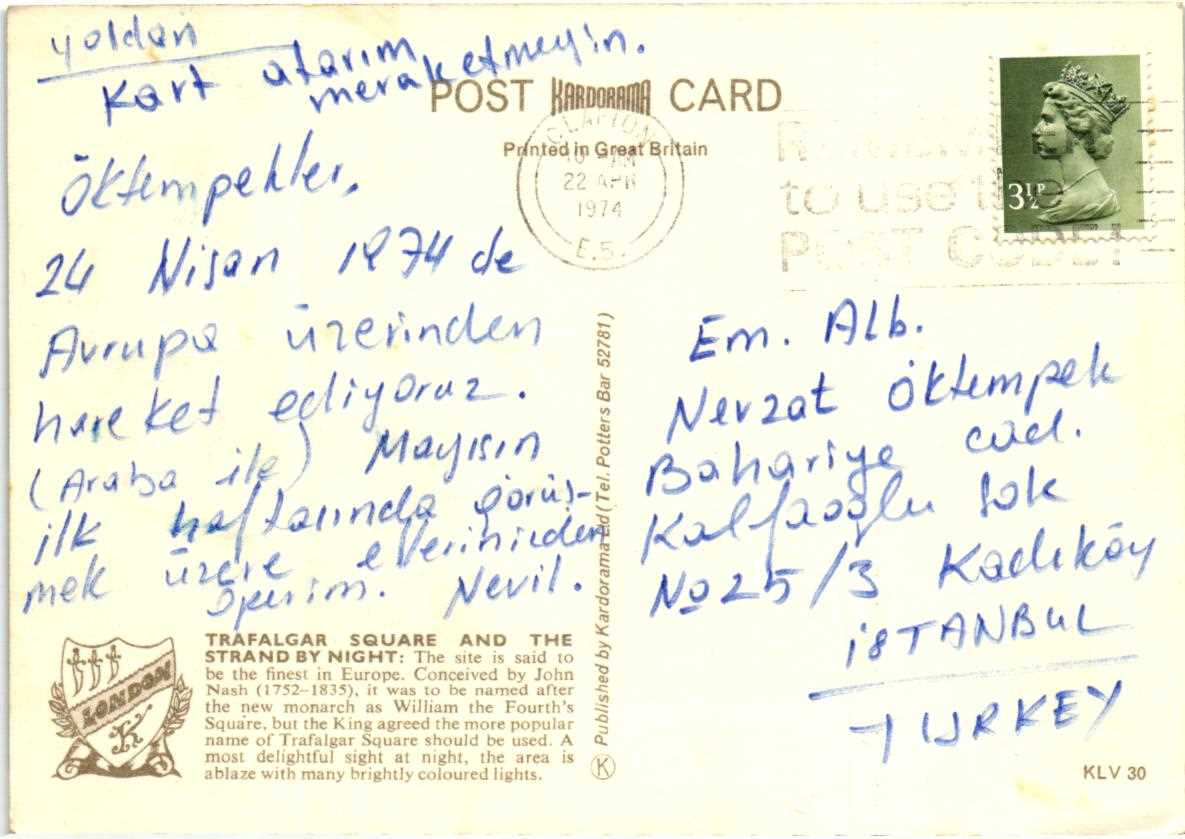 yoldan
Kart atarım
merak etmeyin.
Öktempekler,
24 Nisan 1974 de
Avrupa üzerinden
hareket ediyoruz.
(Araba ile) Mayısın
ilk haftasında görüş-
mek üzere ellerinizden
öperim. Nevil.
POST KARDORAMA CARD
Printed in Great Britain
CLAPTON
22 APR
1974
E.5.
to use the
POST CODE!
3½P
Em. Alb.
Nevzat Öktempek
Bahariye cad.
Kalfaoğlu Sok
No 25/3 Kadıköy
İSTANBUL
TURKEY
Published by Kardorama Ltd (Tel. Potters Bar 52781)
K
LONDON
K
TRAFALGAR SQUARE AND THE
STRAND BY NIGHT: The site is said to
be the finest in Europe. Conceived by John
Nash (1752–1835), it was to be named after
the new monarch as William the Fourth's
Square, but the King agreed the more popular
name of Trafalgar Square should be used. A
most delightful sight at night, the area is
ablaze with many brightly coloured lights.
KLV 30